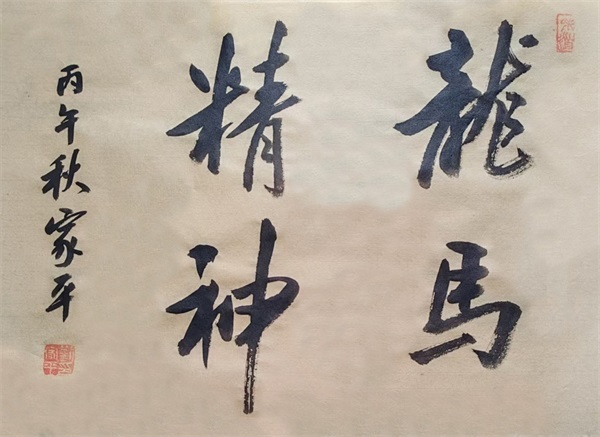 龍馬
精神
丙午秋家平